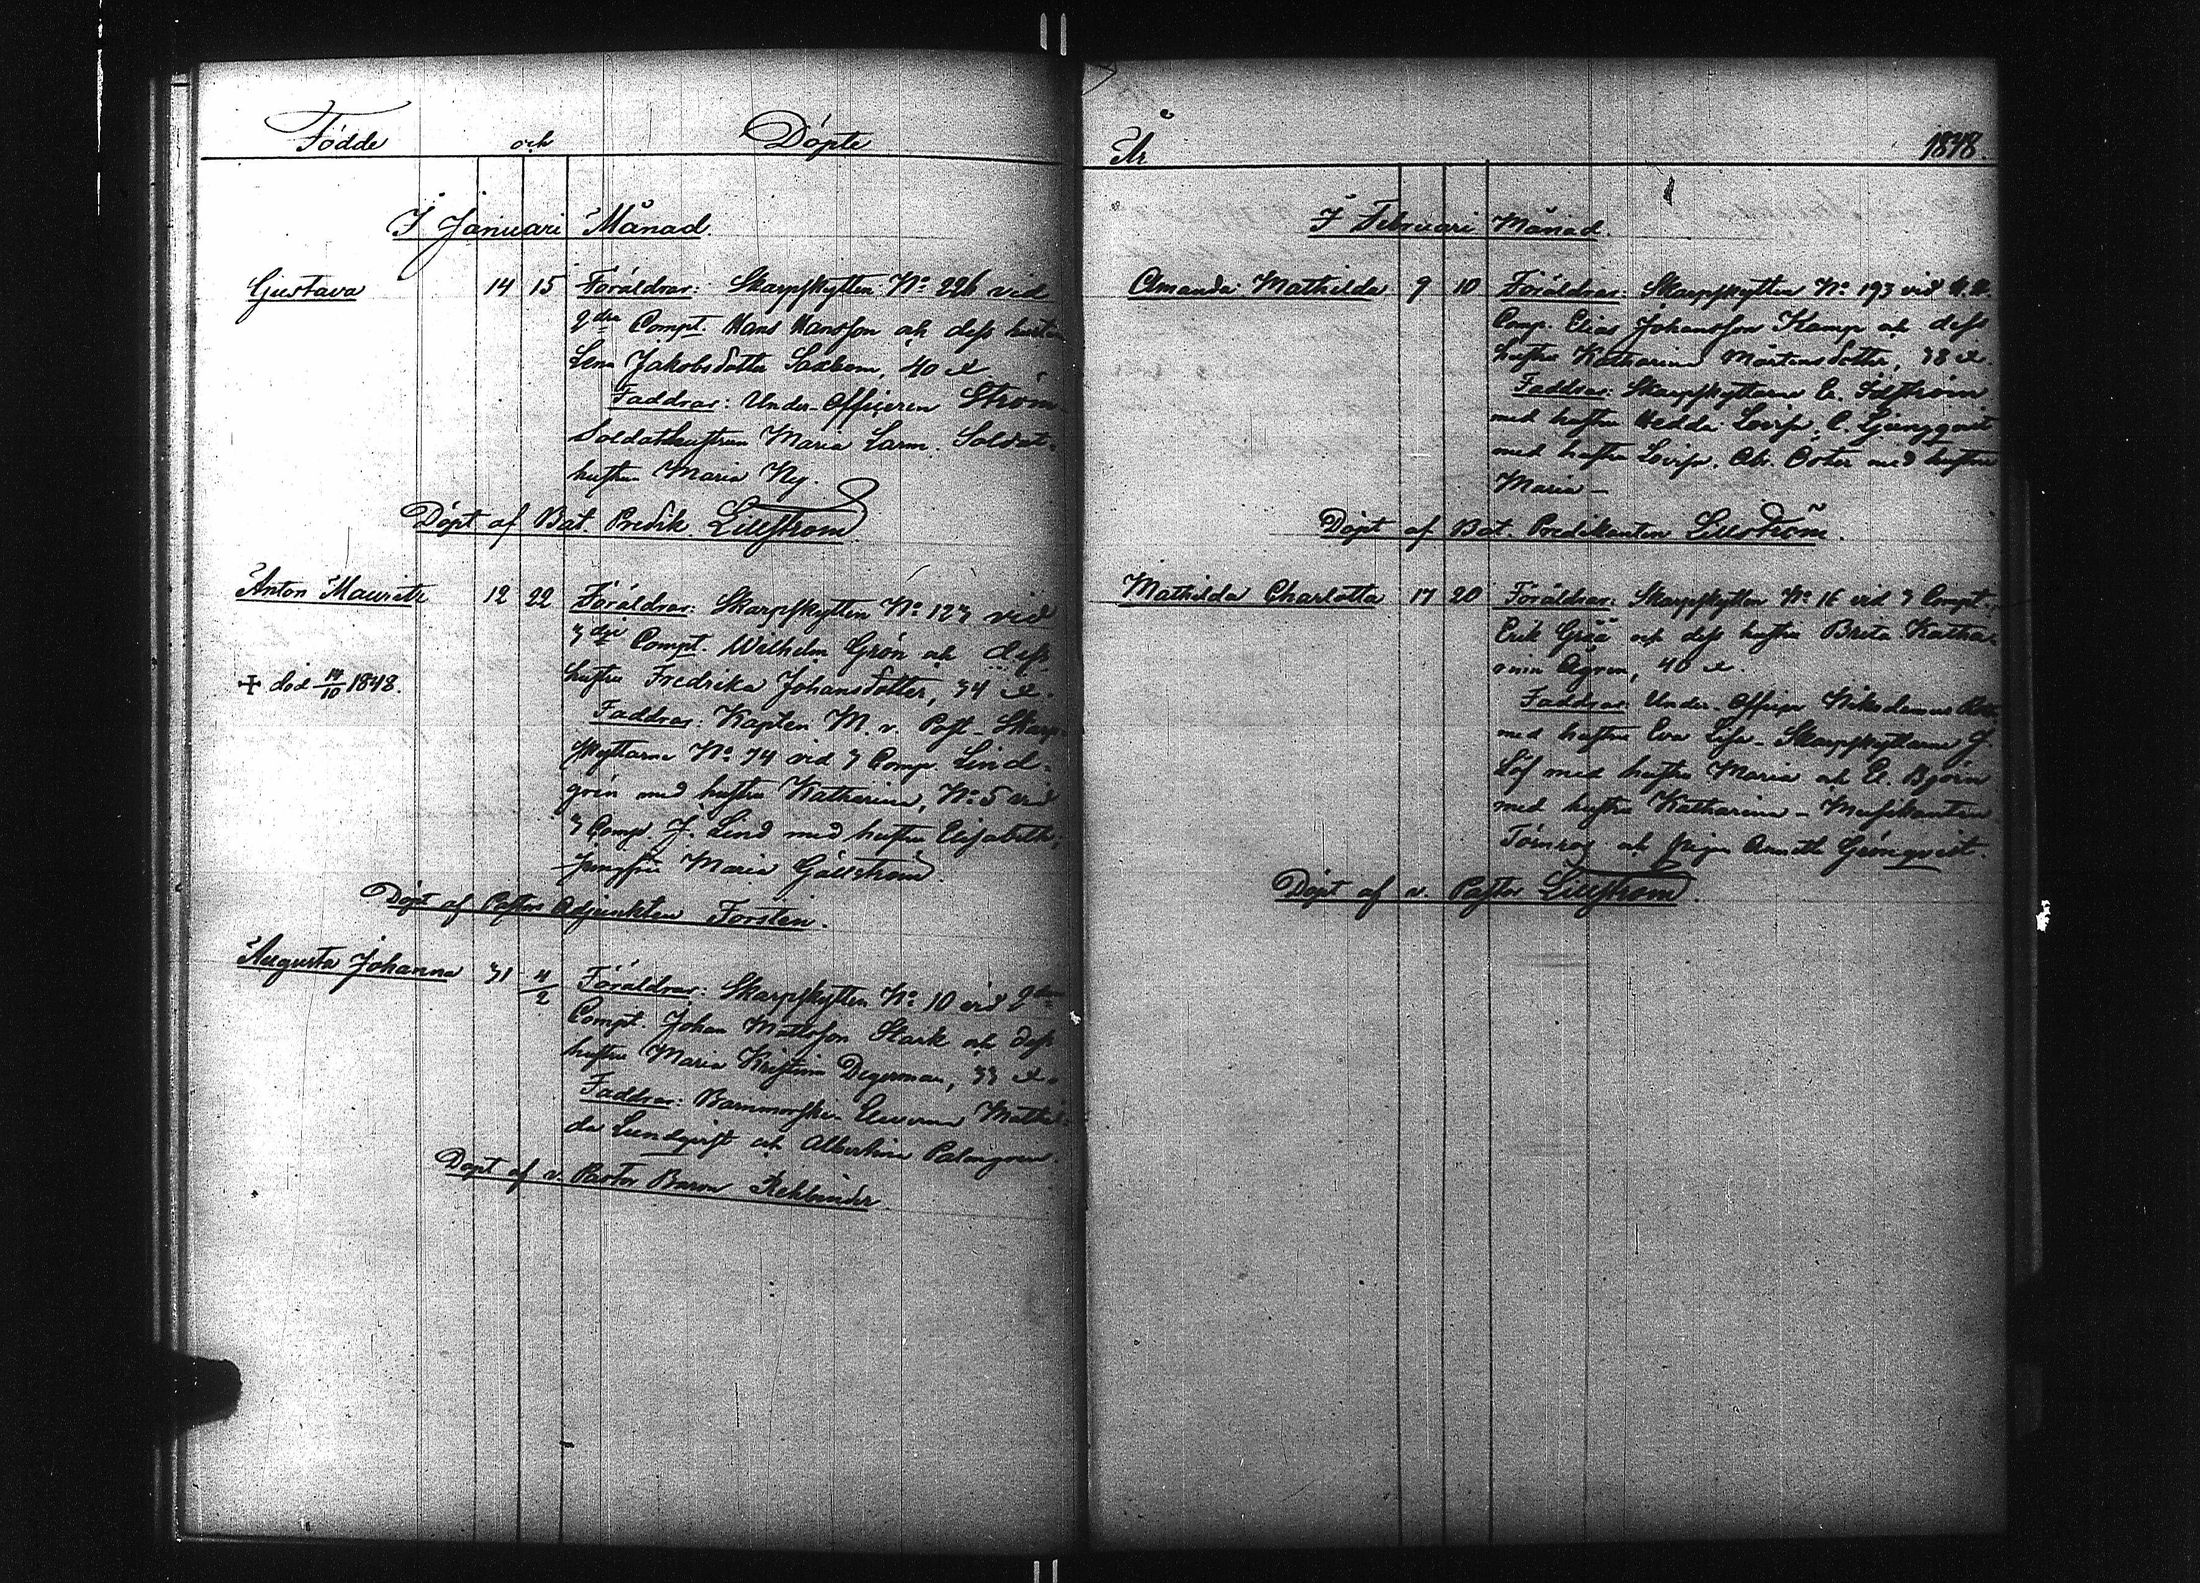 Födde och Döpte
I Januari Månad.
Gustava 14 15 Föräldrar: Skarpskytten No 226 vid
2dra Compt. Hans Hansson och dess hustru
Lena Jakobsdotter Saxbom, 40 år
Faddrar: Under-Officeren Ström
Soldatshustrun Maria Larm. Soldat-
hustrun Maria Ny.
Döpt af Bat. Predik. Lillström.
Anton Mauritz 12 22 Föräldrar: Skarpskytten No 123 vid
3dje Compt. Wilhelm Grön och dess
hustru Fredrika Johansdotter, 34 år.
+ död 14/10 1848.
Faddrar: Kapten M. v. Post - Skarp-
skyttarne No 74 vid 3 Comp. Lind-
grén med hustru Katharina, No 5 vid
3 Comp. J. Lind med hustru Elisabeth,
Jungfru Maria Gällström
Döpt af Pastors Adjunkten Forstén.
Augusta Johanna 31 4/2 Föräldrar: Skarpskytten No 10 vid 2dra
Compt. Johan Mattsson Stark och dess
hustru Maria Kristina Degerman, 33 år.
Faddrar: Barnmorske Mathil-
da Lundqvist och Albertina Palmgren.
Döpt af v. Pastor Baron Rehbinder.
År 1848.
I Februari Månad.
Amanda Mathilda 9 10 Föräldrar: Skarpskytten No 193 vid
Comp. Elias Johansson Kamp och dess
hustru Katharina Mårtensdotter, 38 år.
Faddrar: Skarpskyttarne E. Idström
med hustru Hedda Lovisa, C. Ljungqvist
med hustru Lovisa, Ab. Öster med hustru
Maria -
Döpt af Bat. Predikanten Lillström.
Mathilda Charlotta 17 20 Föräldrar: Skarpskytten No 16 vid 3 Compt.
Erik Grää och dess hustru Brita Katha-
rina Ågren, 40 år.
Faddrar: Under-Officer Nikodemus
med hustru Eva Lisa - Skarpskyttarne J.
Löf med hustru Maria och E. Björn
med hustru Katharina - Musikanten
Törnros och pigan Annette Grönqvist.
Döpt af v. Pastor Lillström.